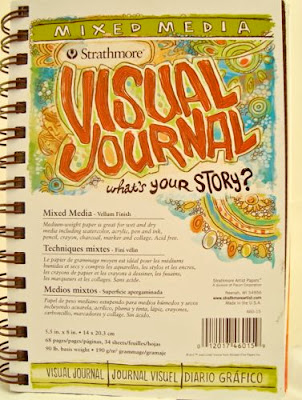 MIXED MEDIA
Strathmore
VISUAL
JOURNAL
what's YOUR STORY?
Mixed Media - Vellum Finish
Medium-weight paper is great for wet and dry
media including watercolor, acrylic, pen and ink,
pencil, crayon, charcoal, marker and collage. Acid free.
Techniques mixtes - Fini vélin
Le papier de grammage moyen est idéal pour les médiums
humides et secs y compris les aquarelles, les stylos et les encres,
les crayons de papier et les crayons à dessiner, les fusains,
les marqueurs et les collages. Sans acide.
Medios mixtos - Superficie apergaminada
Papel de peso mediano estupendo para medios húmedos y secos
incluyendo acuarela, acrílico, pluma y tinta, lápiz, crayones,
carboncillo, marcadores y collage. Sin ácido.
5.5 in. x 8 in. • 14 x 20.3 cm
68 pages/pages/páginas, 34 sheets/feuilles/hojas
90 lb. basis weight • 190 g/m² grammage/gramaje
Strathmore Artist Papers
A division of Pacon Corporation
Neenah, WI 54956
www.strathmoreartist.com
Made in the U.S.A.
460-15
0 12017 46015
VISUAL JOURNAL | JOURNAL VISUEL | DIARIO GRÁFICO